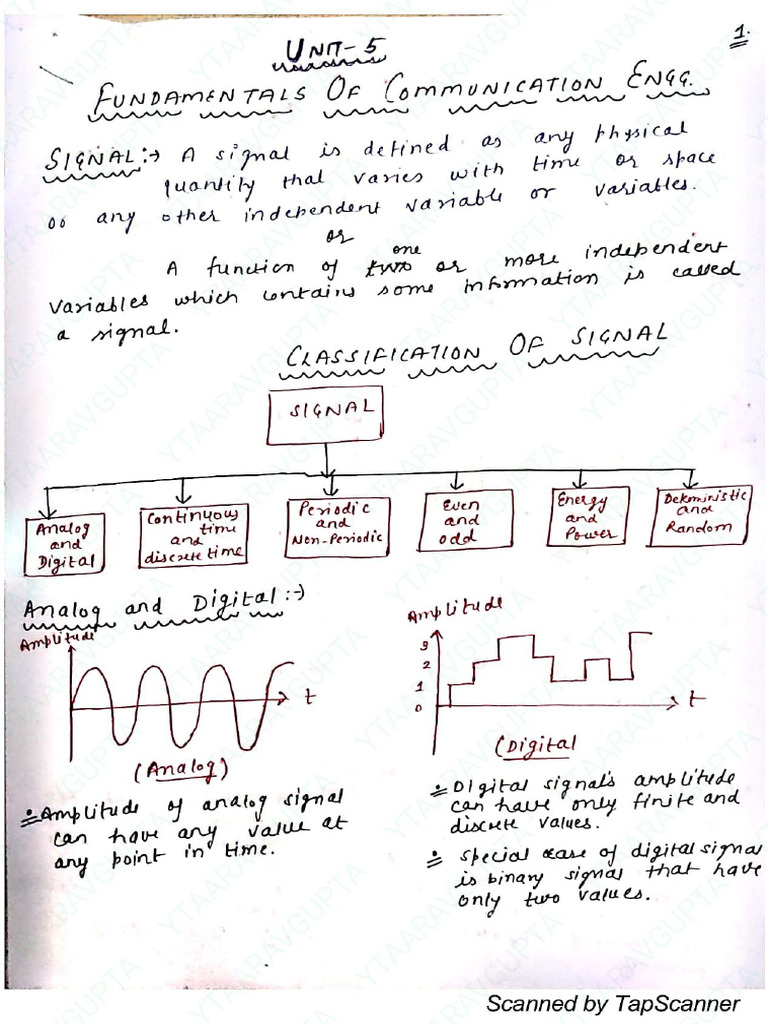 1.
UNIT-5
FUNDAMENTALS OF COMMUNICATION ENGG.
SIGNAL:→ A signal is defined as any physical
quantity that varies with time or space
or any other independent variable or variables.
or
one
A function of two or more independent
variables which contains some information is called
a signal.
CLASSIFICATION OF SIGNAL
SIGNAL
Analog
and
Digital
Continuous
time
and
discrete time
Periodic
and
Non-Periodic
Even
and
odd
Energy
and
Power
Deterministic
and
Random
Analog and Digital:→
Amplitude
t
(Analog)
Amplitude of analog signal
can have any value at
any point in time.
Amplitude
3
2
1
0
t
(Digital
Digital signal's amplitude
can have only finite and
discrete values.
Special case of digital signal
is binary signal that have
only two values.
YTAARAVGUPTA
Scanned by TapScanner